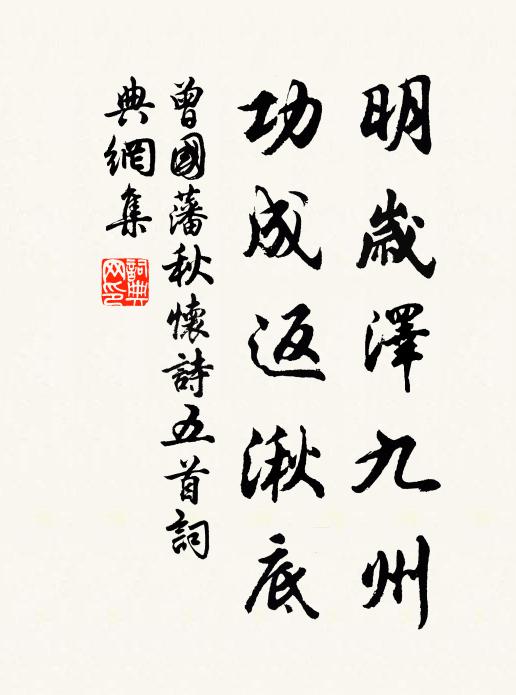 明歲澤九州
功成返湫底
曾國藩秋懷詩五首詞
典網集
詞典
网印